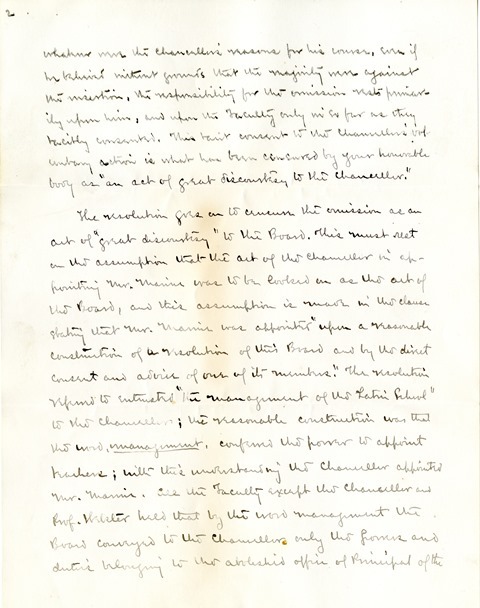 2
whatever were the Chancellor's reasons for his course, even if
he believed without grounds that the majority were against
the insertion, the responsibility for the omission rests primar-
ily upon him, and upon the Faculty only in so far as they
tacitly consented. This tacit consent to the Chancellor's vol-
untary action is what has been censured by your honorable
body as "an act of great discourtesy to the Chancellor."
The resolution goes on to censure the omission as an
act of "great discourtesy" to the Board. This must rest
on the assumption that the act of the Chancellor in ap-
pointing Mr. was to be looked on as the act of
the Board, and this assumption is made in the clause
stating that Mr. was appointed "upon a reasonable
construction of a resolution of this Board and by the direct
consent and advice of one of its members." The resolution
referred to entrusted "the management of the Latin School"
to the Chancellor; the reasonable construction was that
the word, management, conferred the power to appoint
teachers; with this understanding the Chancellor appointed
Mr. All the Faculty except the Chancellor and
Prof. held that by the word management the
Board conveyed to the Chancellor only the powers and
duties belonging to the abolished office of Principal of the